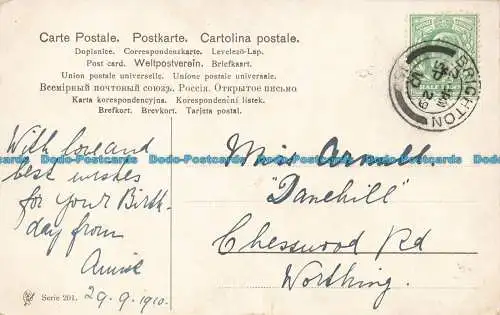 Carte Postale. Postkarte. Cartolina postale.
Dopisnice. Correspondenzkarte. Levelező-Lap.
Post card. Weltpostverein. Briefkaart.
Union postale universelle. Unione postale universale.
Всемірный почтовый союзъ. Россія. Открытое письмо
Karta korespondencyjna. Korespondenční listek.
Brefkort. Brevkort. Tarjeta postal.
HALF PENNY
BRIGHTON
With love and
best wishes
for your Birth-
day from
Serie 201. 29.9.1910.
Miss
"Danehill"
Chesswood Rd
Worthing.
Dado-Postcards